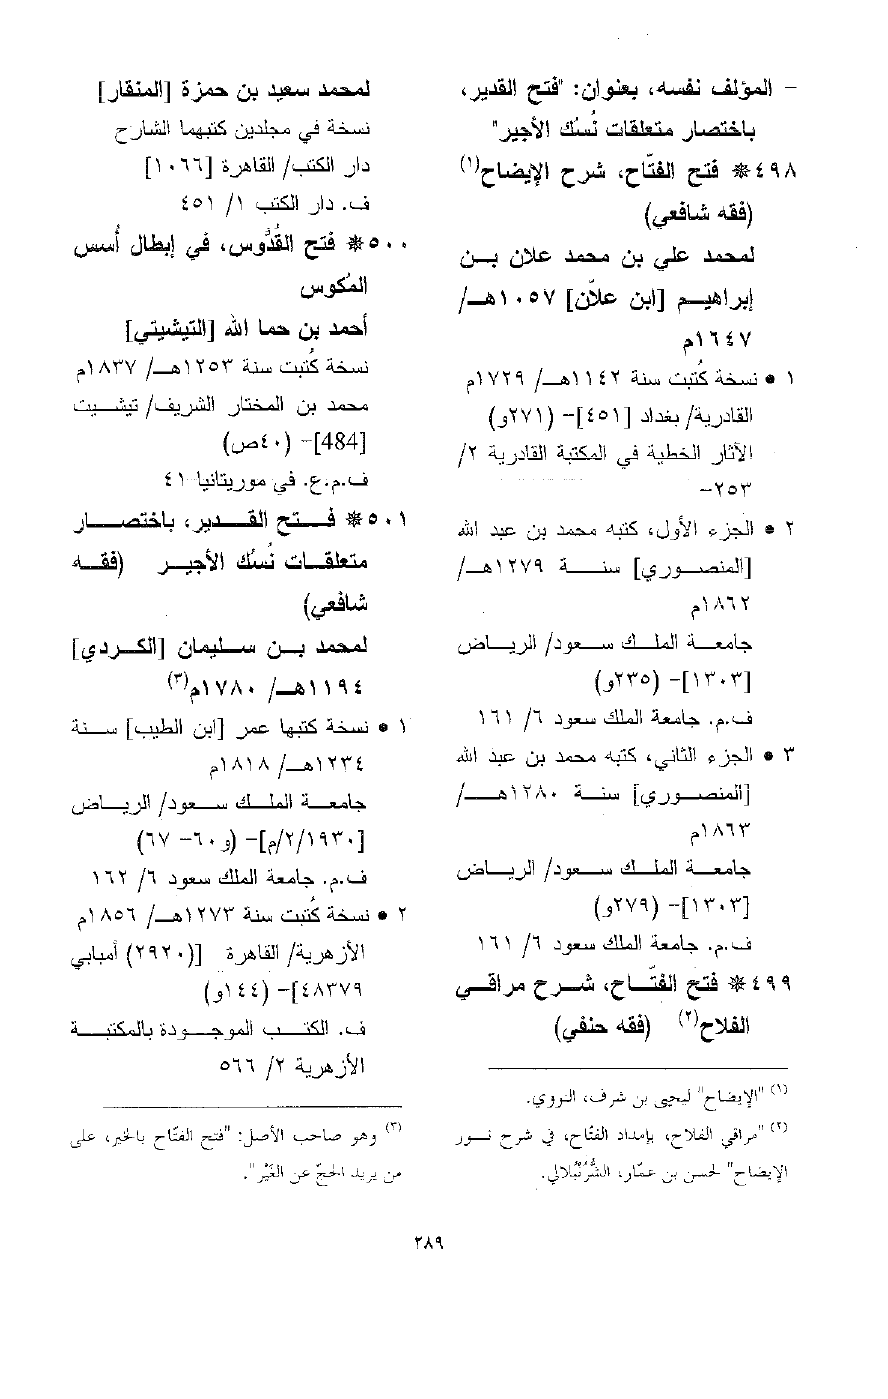 - المؤلف نفسه، بعنوان: "فتح القدير،
باختصار متعلقات نُسك الأجير"
٤٩٨ * فتح الفتّاح، شرح الإيضاح(١)
(فقه شافعي)
لمحمد علي بن محمد علان بن
إبراهيم [ابن علاّن] ١٠٥٧هـ/
١٦٤٧م
١ • نسخة كُتبت سنة ١١٤٢هـ/ ١٧٢٩م
القادرية/ بغداد [٤٥١]- (٢٧١و)
الآثار الخطية في المكتبة القادرية ٢/
٢٥٣-
٢ • الجزء الأول، كتبه محمد بن عبد الله
[المنصوري] سنة ١٢٧٩هـ/
١٨٦٢م
جامعة الملك سعود/ الرياض
[١٣٠٣]- (٢٣٥و)
ف.م. جامعة الملك سعود ٦/ ١٦١
٣ • الجزء الثاني، كتبه محمد بن عبد الله
[المنصوري] سنة ١٢٨٠هـ/
١٨٦٣م
جامعة الملك سعود/ الرياض
[١٣٠٣]- (٢٧٩و)
ف.م. جامعة الملك سعود ٦/ ١٦١
٤٩٩ * فتح الفتّاح، شرح مراقي
الفلاح(٢) (فقه حنفي)
(١) "الإيضاح" ليحيى بن شرف، النووي.
(٢) "مراقي الفلاح، بإمداد الفتّاح، في شرح نور
الإيضاح" لحسن بن عمّار، الشُّرُنْبُلالي.
لمحمد سعيد بن حمزة [المنقار]
نسخة في مجلدين كتبهما الشارح
دار الكتب/ القاهرة [١٠٦٦]
ف. دار الكتب ١/ ٤٥١
٥٠٠ * فتح القُدُّوس، في إبطال أُسس
المكُوس
أحمد بن حما الله [التيشيتي]
نسخة كُتبت سنة ١٢٥٣هـ/ ١٨٣٧م
محمد بن المختار الشريف/ تيشيت
[484]- (٤٠ص)
ف.م.ع. في موريتانيا ٤١
٥٠١ * فتح القدير، باختصار
متعلقات نُسك الأجير (فقه
شافعي)
لمحمد بن سليمان [الكردي]
١١٩٤هـ/ ١٧٨٠م(٣)
١ • نسخة كتبها عمر [ابن الطيب] سنة
١٢٣٤هـ/ ١٨١٨م
جامعة الملك سعود/ الرياض
[٢/١٩٣٠/م]- (و٦٠- ٦٧)
ف.م. جامعة الملك سعود ٦/ ١٦٢
٢ • نسخة كُتبت سنة ١٢٧٣هـ/ ١٨٥٦م
الأزهرية/ القاهرة [(٢٩٢٠) أمبابي
٤٨٣٧٩]- (١٤٤و)
ف. الكتب الموجودة بالمكتبة
الأزهرية ٢/ ٥٦٦
(٣) وهو صاحب الأصل: "فتح الفتّاح بالخير، على
من يريد الحجّ عن الغَيْر".
٢٨٩